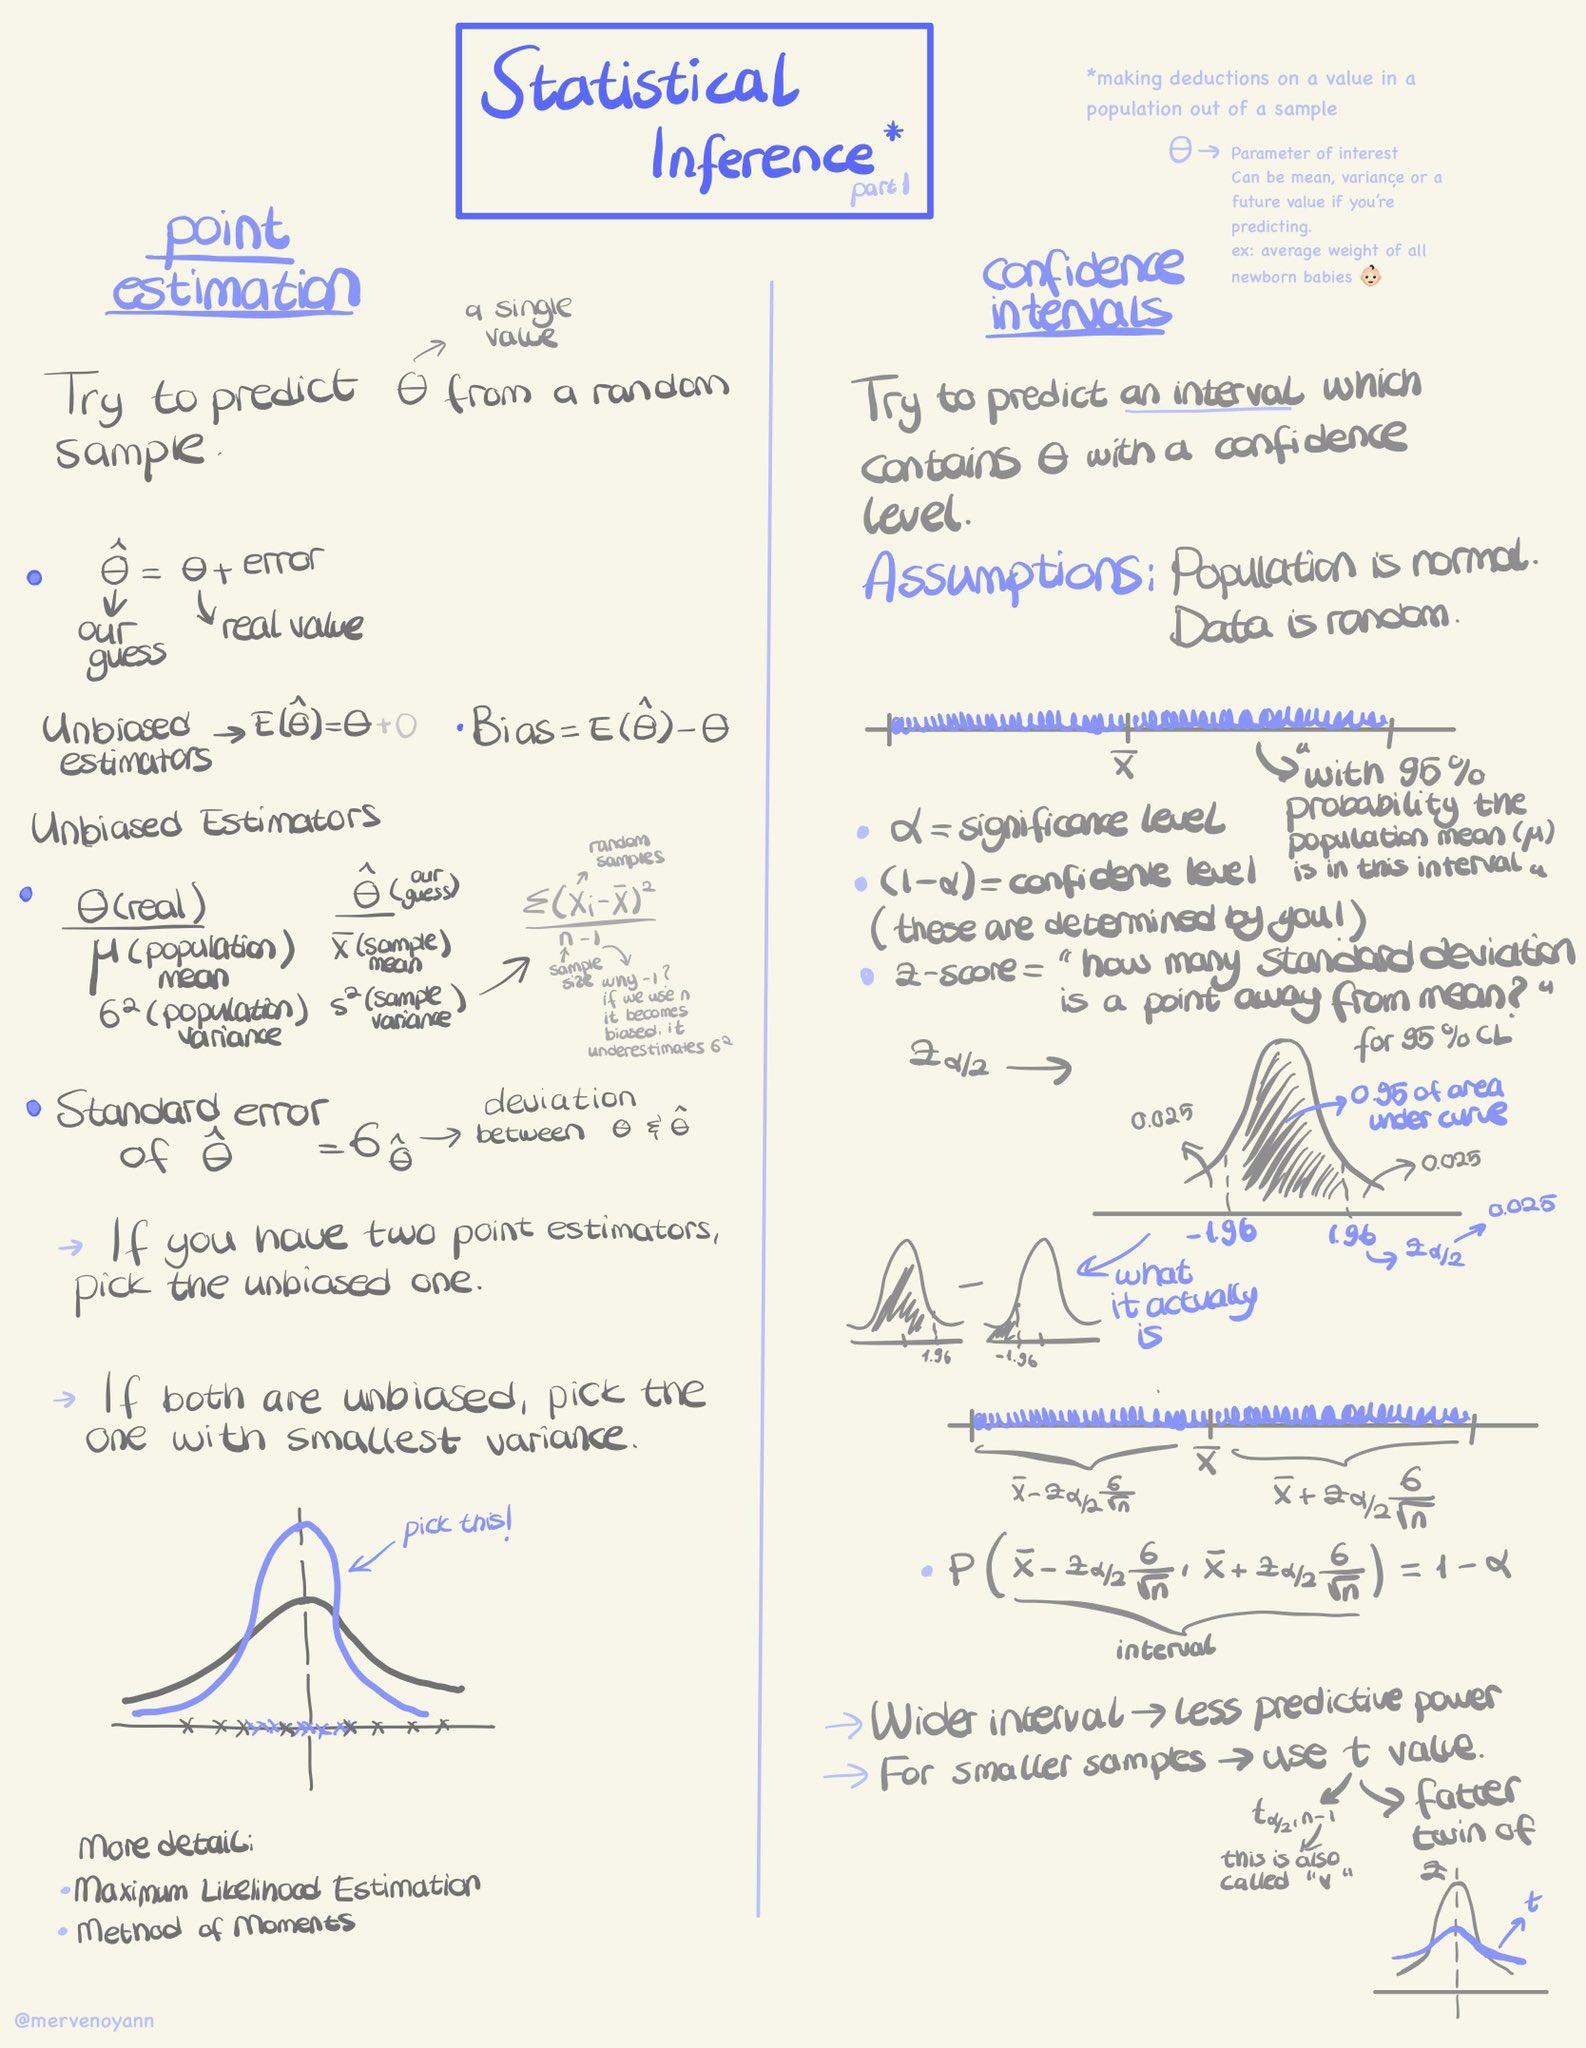 Statistical
Inference*
part 1
*making deductions on a value in a
population out of a sample
θ → Parameter of interest
Can be mean, variance or a
future value if you're
predicting.
ex: average weight of all
newborn babies 👶🏻
point
estimation
a single
value
Try to predict θ from a random
sample.
• θ̂ = θ + error
our
guess
real value
Unbiased → E(θ̂)=θ+0
estimators
• Bias = E(θ̂) - θ
Unbiased Estimators
• θ(real)
θ̂ (our
guess)
μ (population)
mean
x̄ (sample)
mean
σ² (population)
variance
s² (sample
variance)
random
samples
Σ(Xi-x̄)²
n-1
sample
size
why -1?
if we use n
it becomes
biased. it
underestimates σ²
• Standard error
of θ̂ = σθ̂ → deviation
between θ & θ̂
→ If you have two point estimators,
pick the unbiased one.
→ If both are unbiased, pick the
one with smallest variance.
pick this!
x x x x x x x x x x x x x x
More detail:
• Maximum Likelihood Estimation
• Method of Moments
@mervenoyann
confidence
intervals
Try to predict an interval which
contains θ with a confidence
level.
Assumptions: Population is normal.
Data is random.
x̄
"with 95%
probability the
population mean (μ)
is in this interval"
• α = significance level
• (1-α) = confidence level
(these are determined by you!)
• z-score = "how many standard deviation
is a point away from mean?"
zα/2 →
for 95% CL
0.95 of area
under curve
0.025
0.025
-1.96
1.96 → zα/2 → 0.025
what
it actually
is
-
1.96
-1.96
x̄
x̄ - zα/2 σ/√n
x̄ + zα/2 σ/√n
• P(x̄ - zα/2 σ/√n, x̄ + zα/2 σ/√n) = 1 - α
interval
→ Wider interval → Less predictive power
→ For smaller samples → use t value.
tα/2, n-1
this is also
called "v"
fatter
twin of
z
t